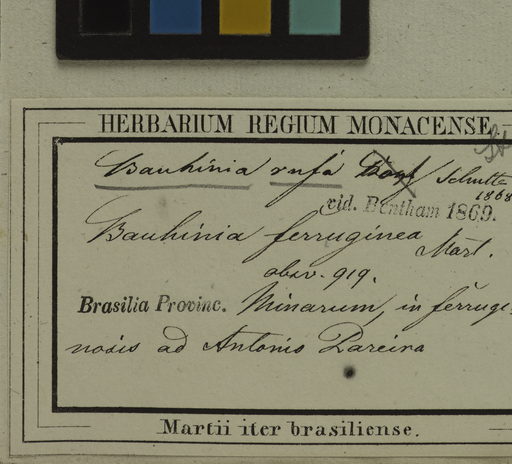 HERBARIUM REGIUM MONACENSE
Bauhinia rufa Bong Schultz
1868
vid. Bentham 1869.
Bauhinia ferruginea
Mart.
obsv. 919.
Brasilia Provinc. Minarum, in ferrugi-
nosis ad Antonio Pareira
Martii iter brasiliense.